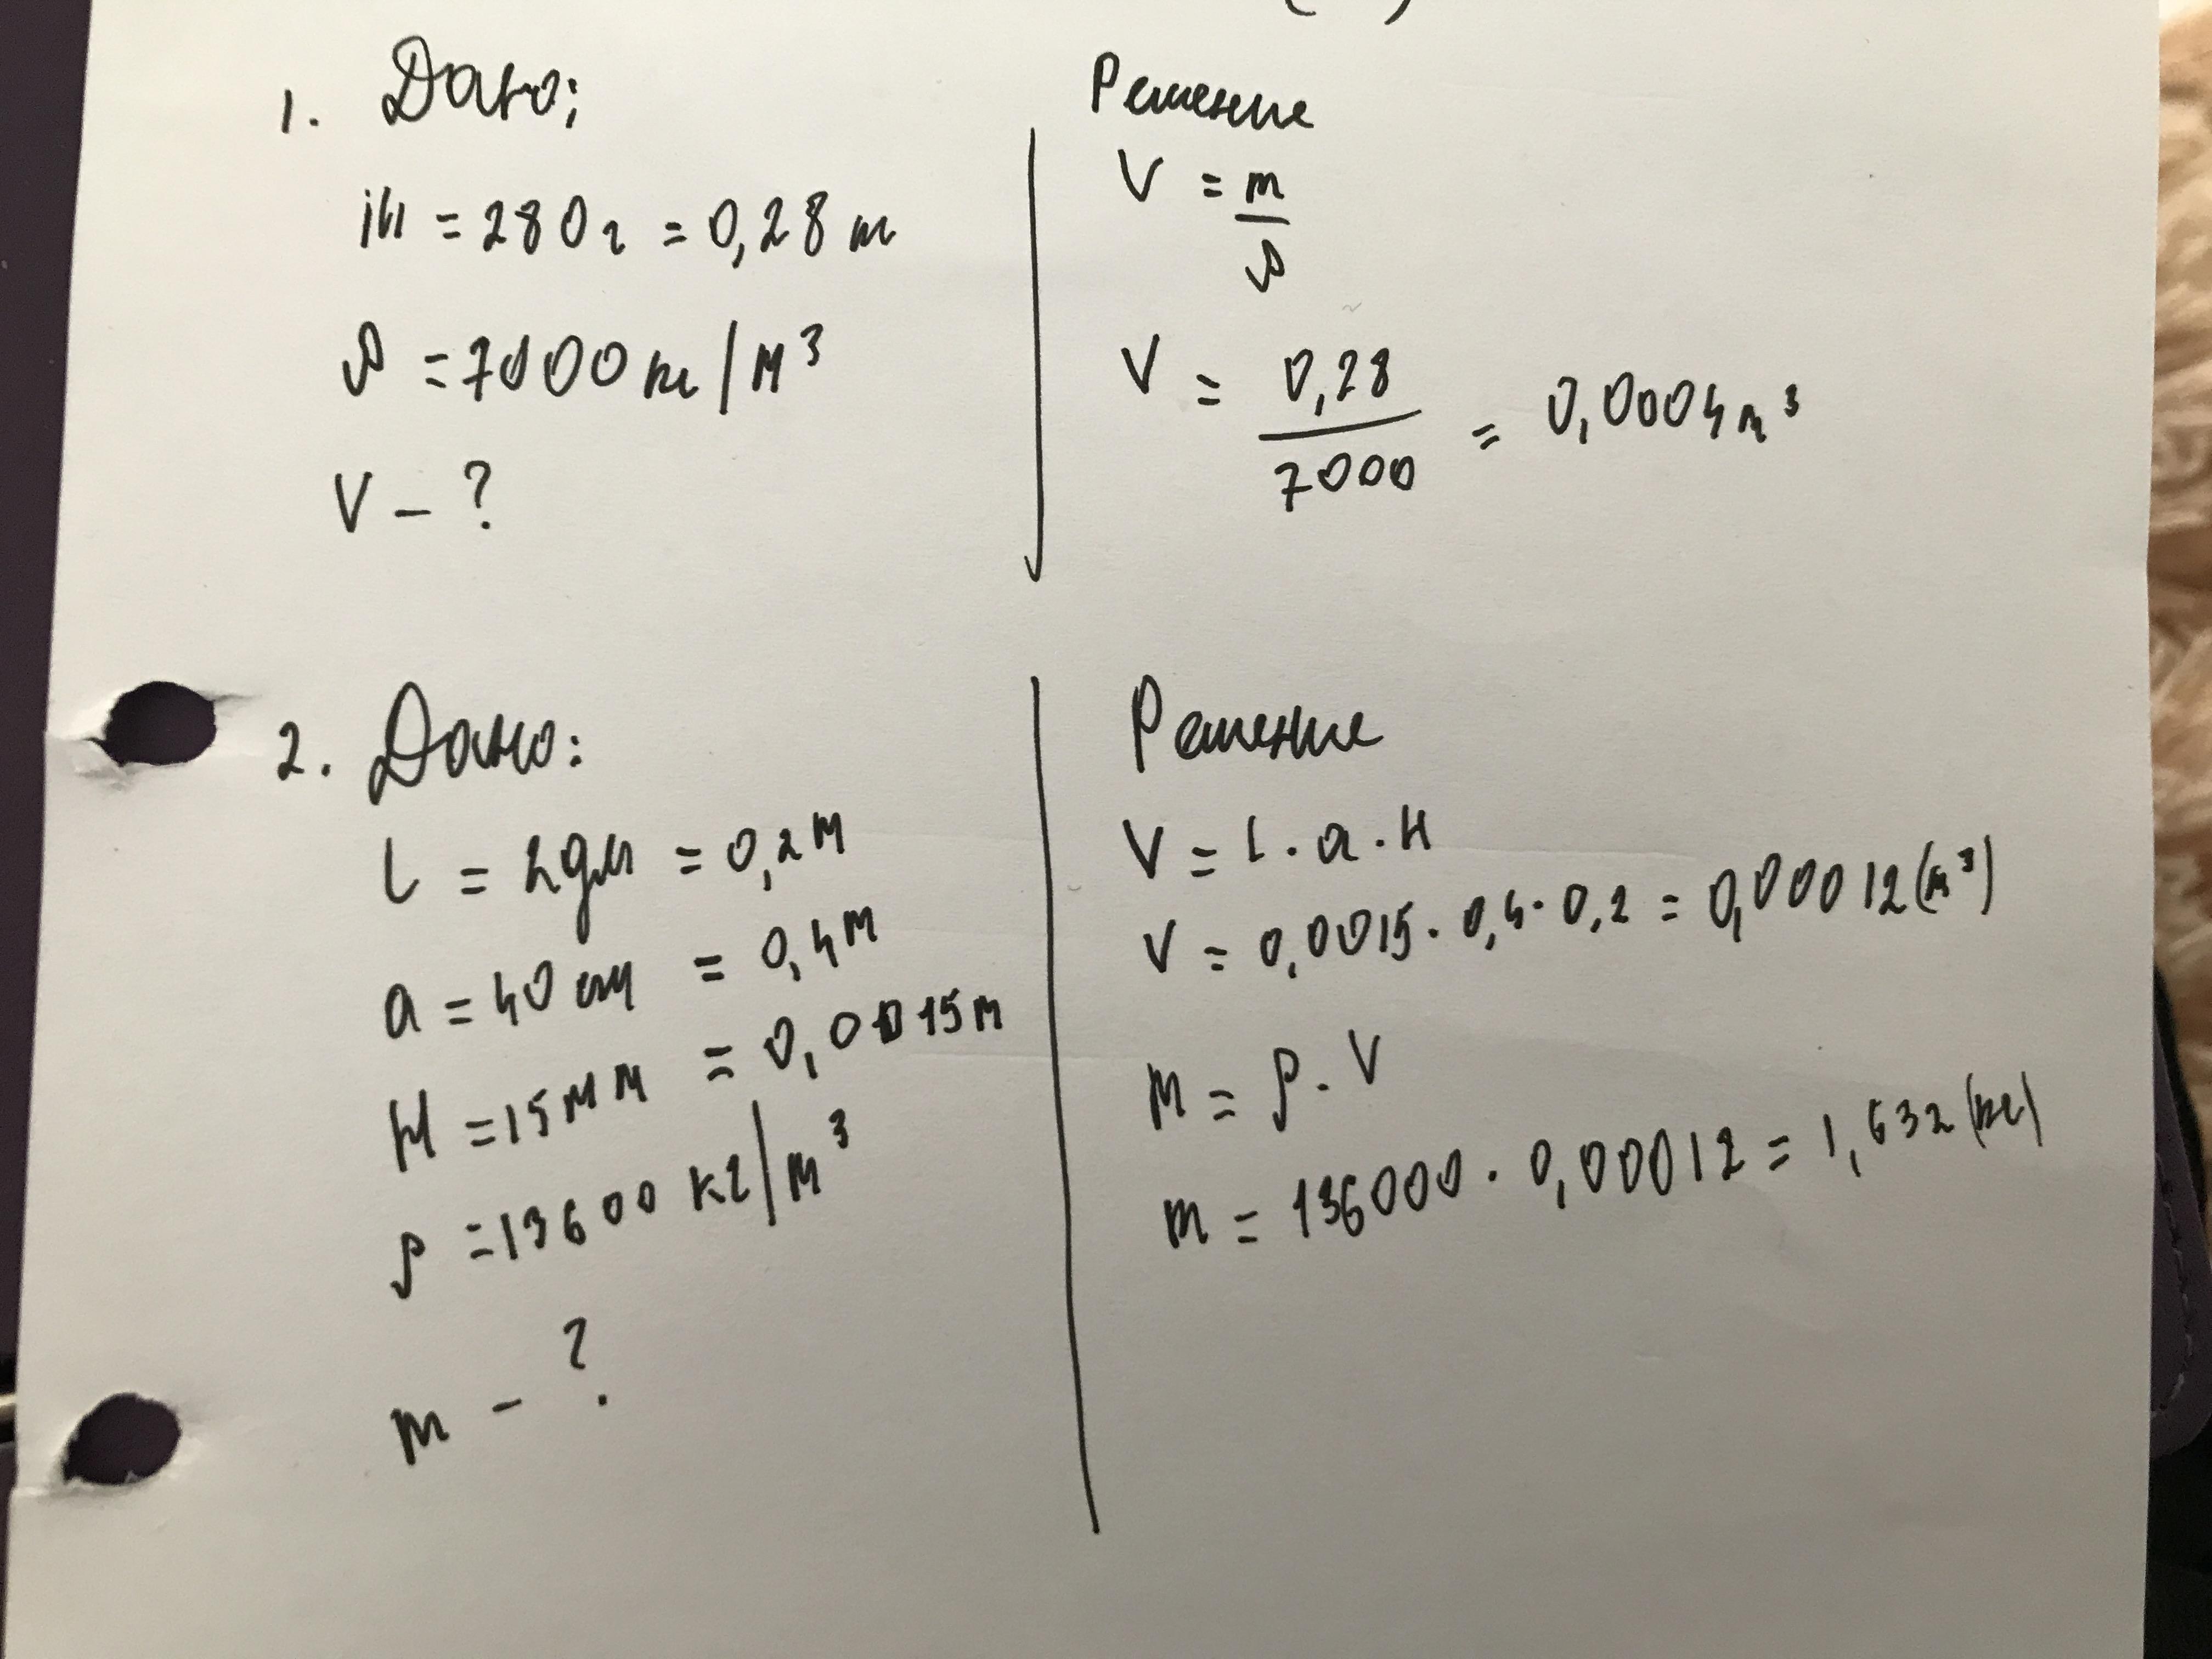 1. Дано:
m = 280г = 0,28 т
ρ = 7000 кг/м³
V - ?
Решение
V = m/ρ
V = 0,28/7000 = 0,0004 м³
2. Дано:
l = 2дм = 0,2м
a = 40 см = 0,4м
H = 15мм = 0,0015м
ρ = 13600 кг/м³
m - ?
Решение
V = l · a · H
V = 0,0015 · 0,4 · 0,2 = 0,00012 (м³)
m = ρ · V
m = 136000 · 0,00012 = 1,632 (кг)